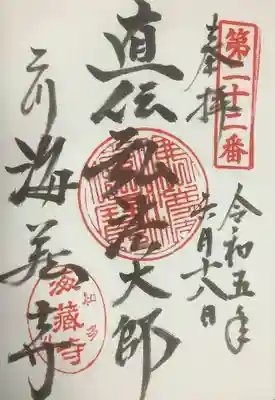 第二十二番
奉拝
令和五年
月十八日
直伝弘法大師
乙川海蔵寺
知多
海蔵寺